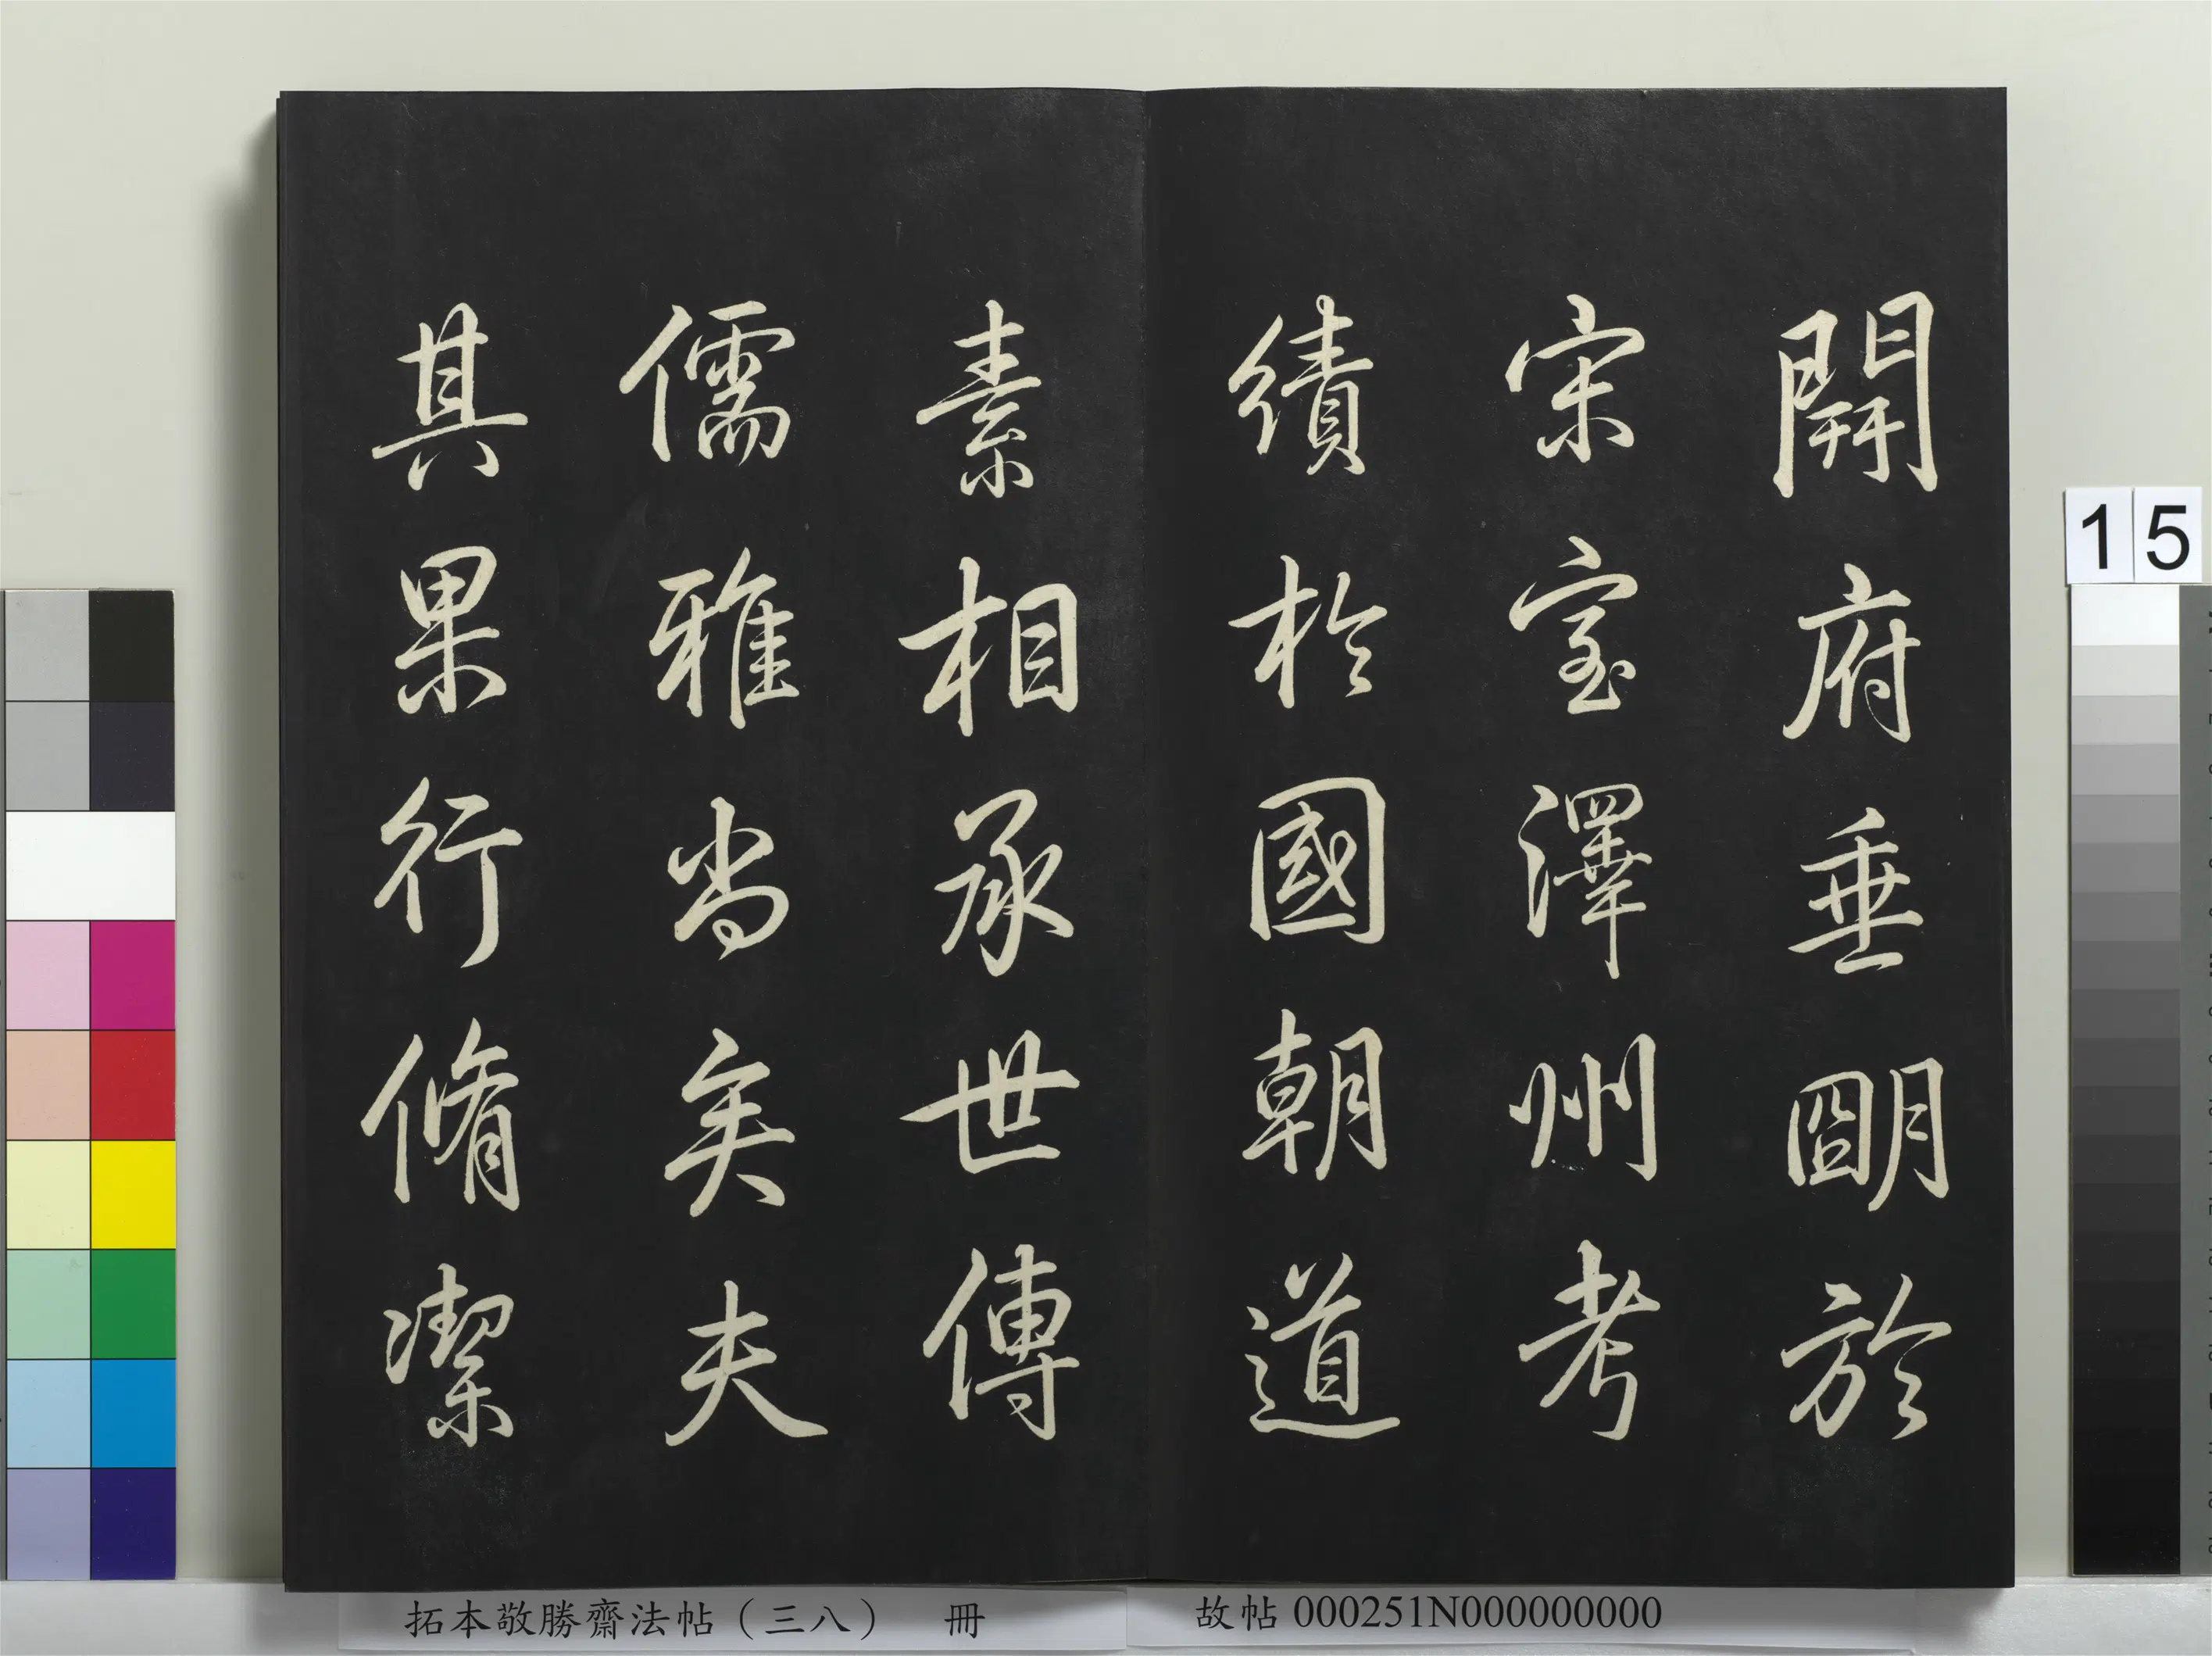 開府垂朙於
宋室澤州考
績於國朝道
素相承世傳
儒雅尚矣夫
其果行脩潔
15
拓本敬勝齋法帖（三八） 冊
故帖000251N000000000